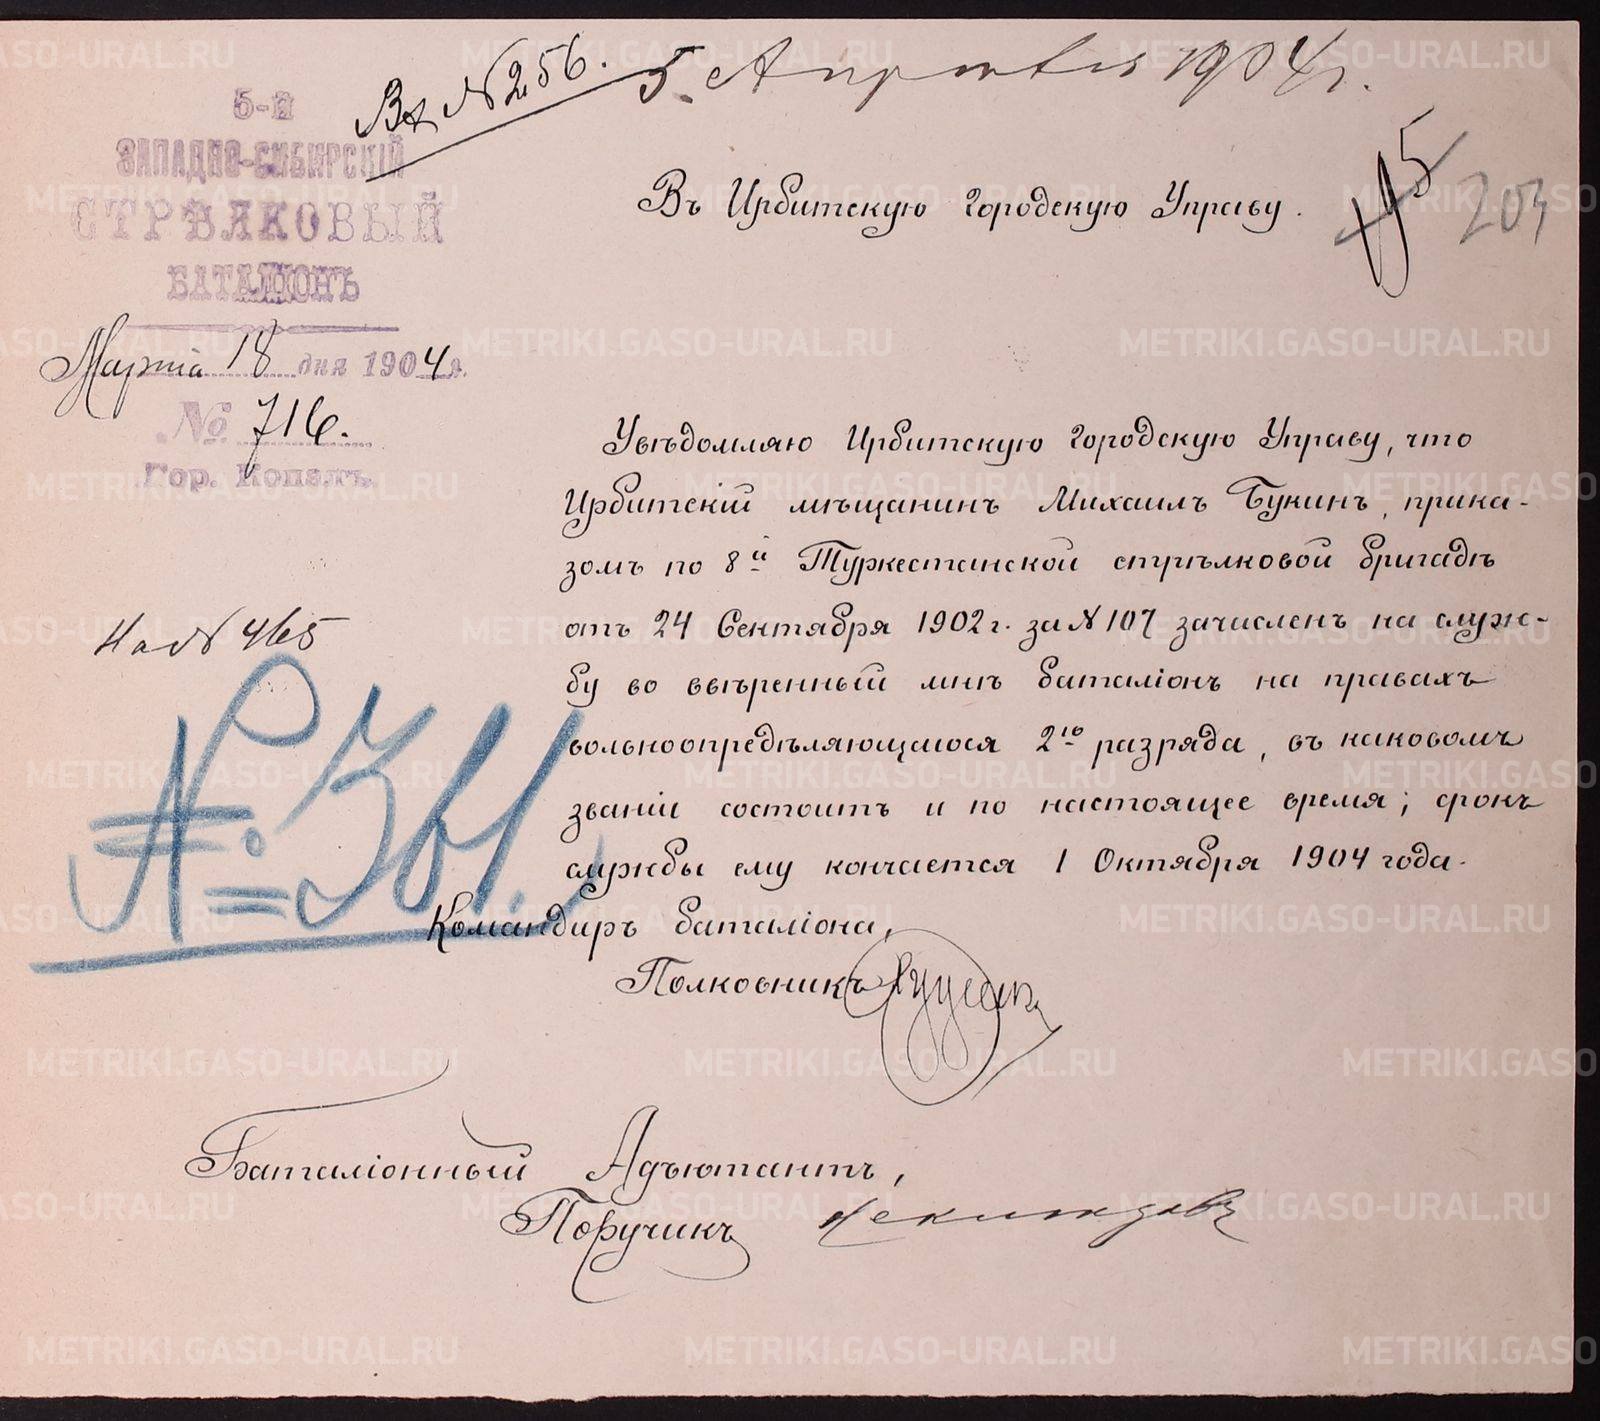 Вх № 256. 5 Апреля 1904 г.
5-й
ЗАПАДНО-СИБИРСКІЙ
СТРѢЛКОВЫЙ
БАТАЛІОНЪ
Марта 18 дня 1904 г.
№ 716.
Гор. Копалъ.
Въ Ирбитскую городскую Управу.
203
Увѣдомляю Ирбитскую городскую Управу, что
Ирбитскій мѣщанинъ Михаилъ Букинъ, прика-
зомъ по 8й Туркестанской стрѣлковой бригадѣ
отъ 24 Сентября 1902 г. за № 107 зачисленъ на служ-
бу во ввѣренный мнѣ баталіонъ на правахъ
вольноопредѣляющагося 2го разряда, въ каковомъ
званіи состоитъ и по настоящее время; срокъ
службы ему кончается 1 Октября 1904 года.
На № 465
№ 361.
Командиръ баталіона,
Полковникъ
Баталіонный Адъютантъ,
Поручикъ
METRIKI.GASO-URAL.RU